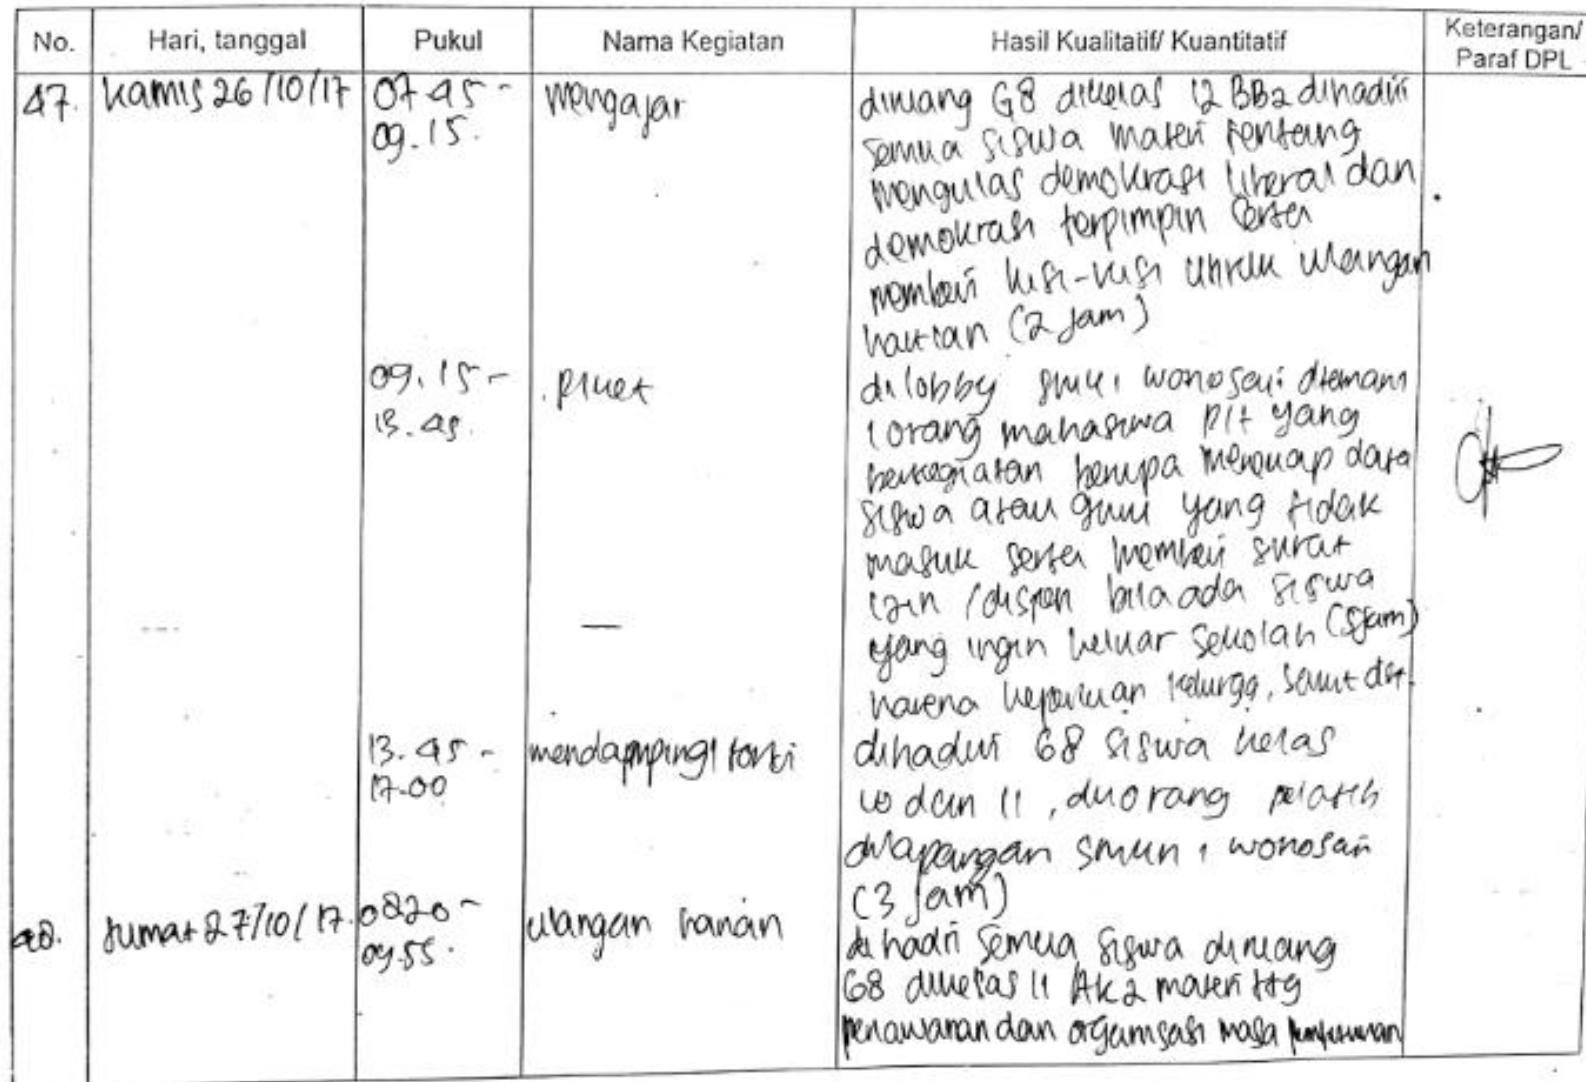 No. Hari, tanggal Pukul Nama Kegiatan Hasil Kualitatif/ Kuantitatif Keterangan/ Paraf DPL
47. Kamis 26/10/17 07.45 - mengajar diruang G8 dikelas 12 BB2 dihadiri
09.15. semua siswa materi tentang
mengulas demokrasi liberal dan
demokrasi terpimpin serta
memberi kisi-kisi untuk ulangan
harian (2 jam)
09.15 - piket di lobby smk 1 wonosari ditemani
13.45. 1 orang mahasiswa plt yang
berkegiatan berupa merekap data
siswa atau guru yang tidak
masuk serta memberi surat
izin /dispen bila ada siswa
yang ingin keluar sekolah (5jam)
karena keperluan kelurga, sakit dst.
13.45 - mendampingi tonti dihadiri 68 siswa kelas
17.00 10 dan 11, duorang pelatih
dilapangan smkn 1 wonosari
(3 jam)
48. Jumat 27/10/17. 0820 - ulangan harian di hadiri semua siswa diruang
09.55. G8 dikelas 11 AK2 materi ttg
penawaran dan organisasi masa